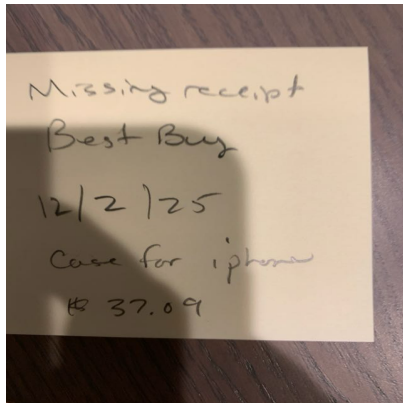 Missing receipt
Best Buy
12/2/25
Case for iphone
$ 37.09